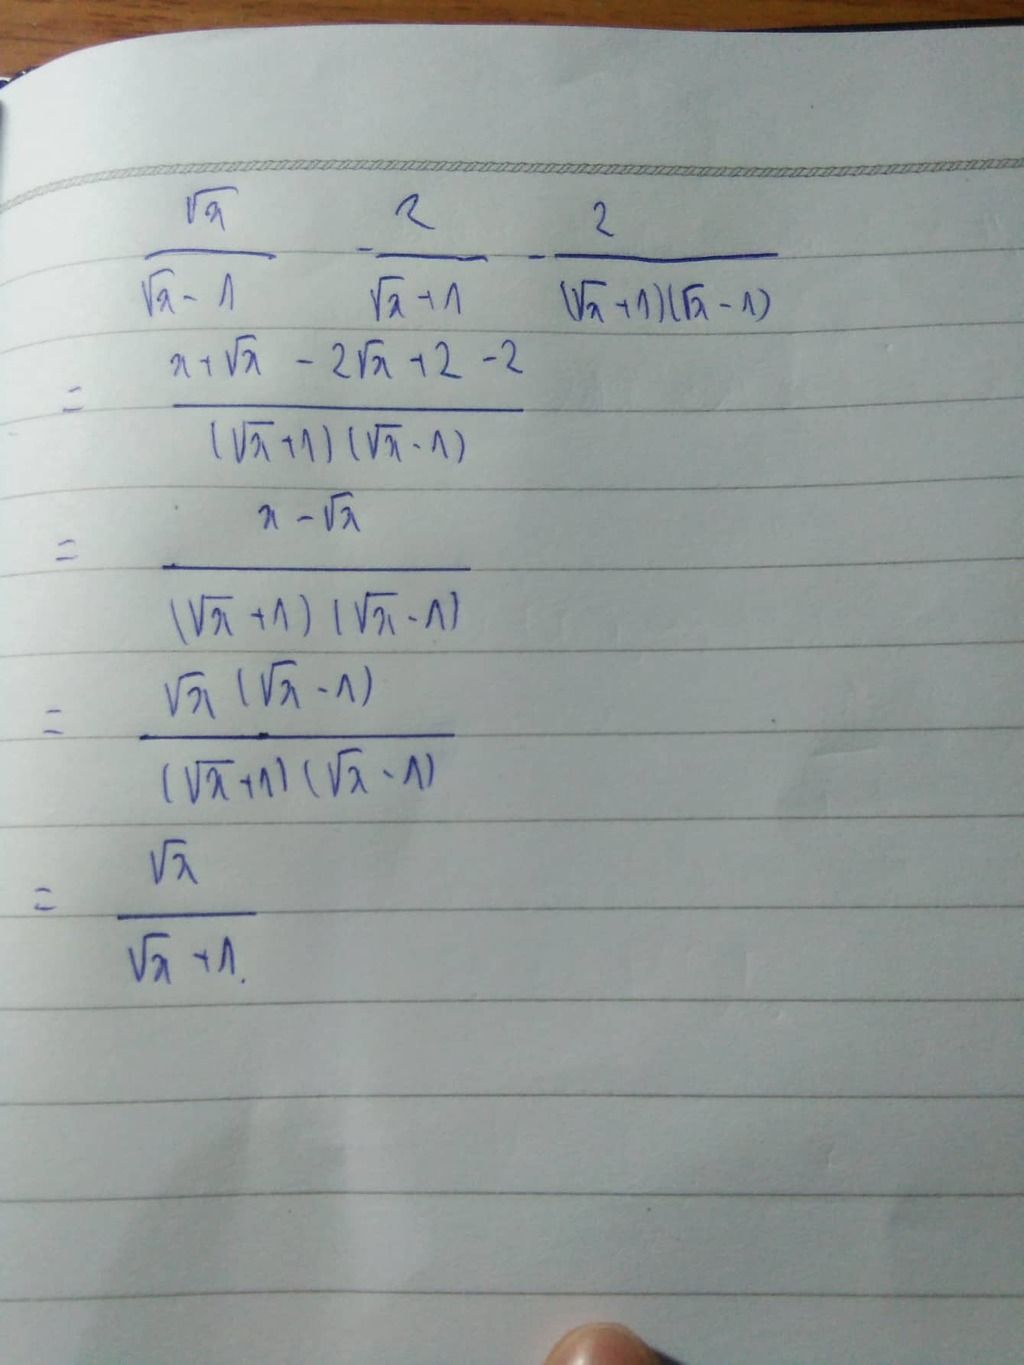 √x / (√x - 1) - 2 / (√x + 1) - 2 / ((√x + 1)(√x - 1))
= (x + √x - 2√x + 2 - 2) / ((√x + 1)(√x - 1))
= (x - √x) / ((√x + 1)(√x - 1))
= √x(√x - 1) / ((√x + 1)(√x - 1))
= √x / (√x + 1).